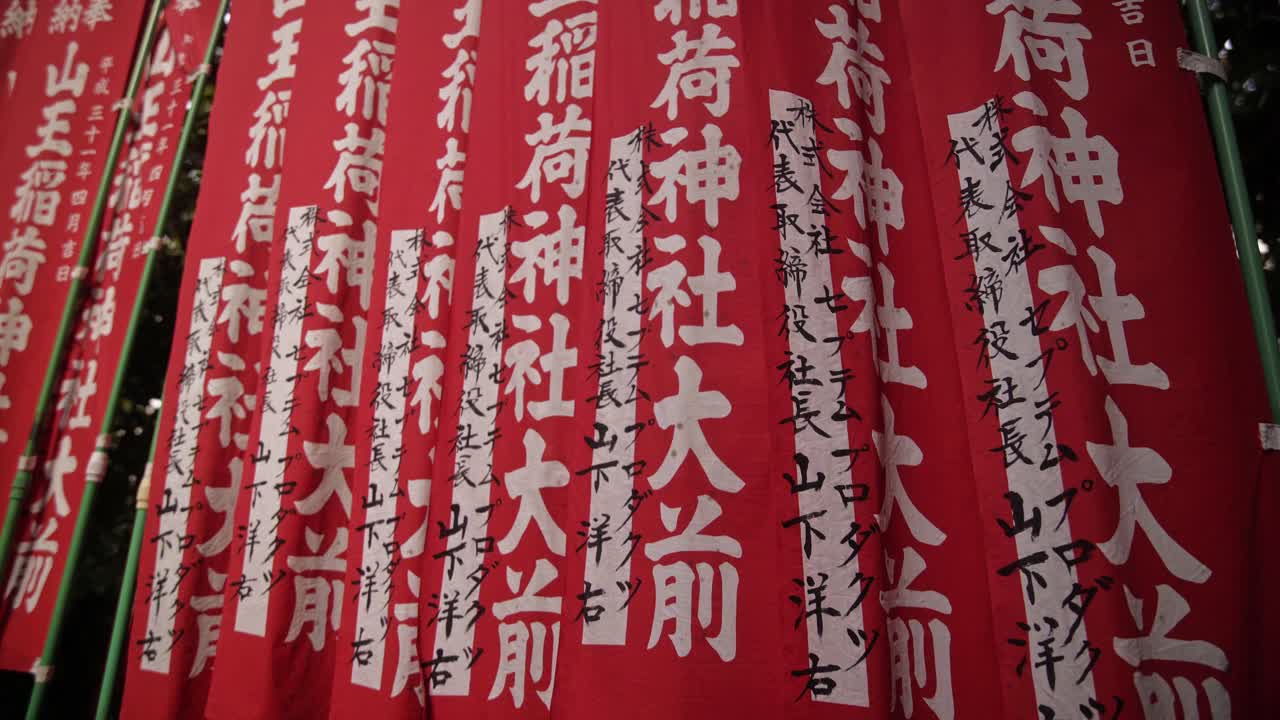 吉日
荷神社大前
株式会社 セプテムプロダクツ
代表取締役社長 山下洋
荷神社大前
株式会社 セプテムプロダクツ
代表取締役社長 山下洋右
稲荷神社大前
株式会社 セプテムプロダクツ
代表取締役社長 山下洋右
稲荷神社大前
株式会社 セプテムプロダクツ
代表取締役社長 山下洋右
王稲荷神社
株式会社 セプテムプロダクツ
代表取締役社長 山下洋右
王稲荷神社大前
株式会社 セプテムプロダクツ
代表取締役社長 山下洋右
王稲荷神社大前
株式会社 セプテムプロダクツ
代表取締役社長 山下洋右
山王稲荷神社大前
奉納
平成三十一年四月吉日
山王稲荷神